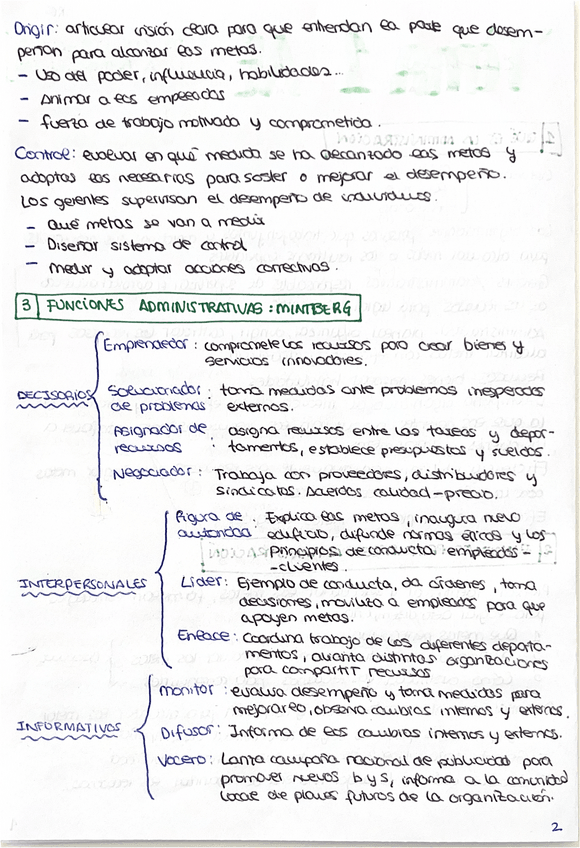 Dirigir: articular visión clara para que entiendan la parte que desem-
peñan para alcanzar las metas.
- Uso del poder, influencia, habilidades...
- Animar a los empleados
- fuerza de trabajo motivada y comprometida.
Control: evaluar en qué medida se ha alcanzado las metas y
adoptar las necesarias para sostener o mejorar el desempeño.
Los gerentes supervisan el desempeño de individuos.
- Qué metas se van a medir
- Diseñar sistema de control
- Medir y adoptar acciones correctivas.
3 FUNCIONES ADMINISTRATIVAS: MINTBERG
DECISORIOS
Emprendedor: compromete los recursos para crear bienes y
servicios innovadores.
Solucionador de problemas: toma medidas ante problemas inesperados
externos.
Asignador de recursos: asigna recursos entre las tareas y depar-
tamentos, establece presupuestos y sueldos.
Negociador: Trabaja con proveedores, distribuidores y
sindicatos. Acuerdos calidad-precio.
INTERPERSONALES
Figura de autoridad: Explica las metas, inaugura nuevo
edificio, difunde normas éticas y los
principios de conducta empleados-
-clientes.
Líder: Ejemplo de conducta, da órdenes, toma
decisiones, moviliza a empleados para que
apoyen metas.
Enlace: Coordina trabajo de los diferentes departa-
mentos, distintas organizaciones
para compartir recursos
INFORMATIVOS
Monitor: evalua desempeño y toma medidas para
mejorarlo, observa cambios internos y externos.
Difusor: Informa de los cambios internos y externos.
Vocero: Lanza campaña nacional de publicidad para
promover nuevos b y s, informa a la comunidad
local de planes futuros de la organización.
2